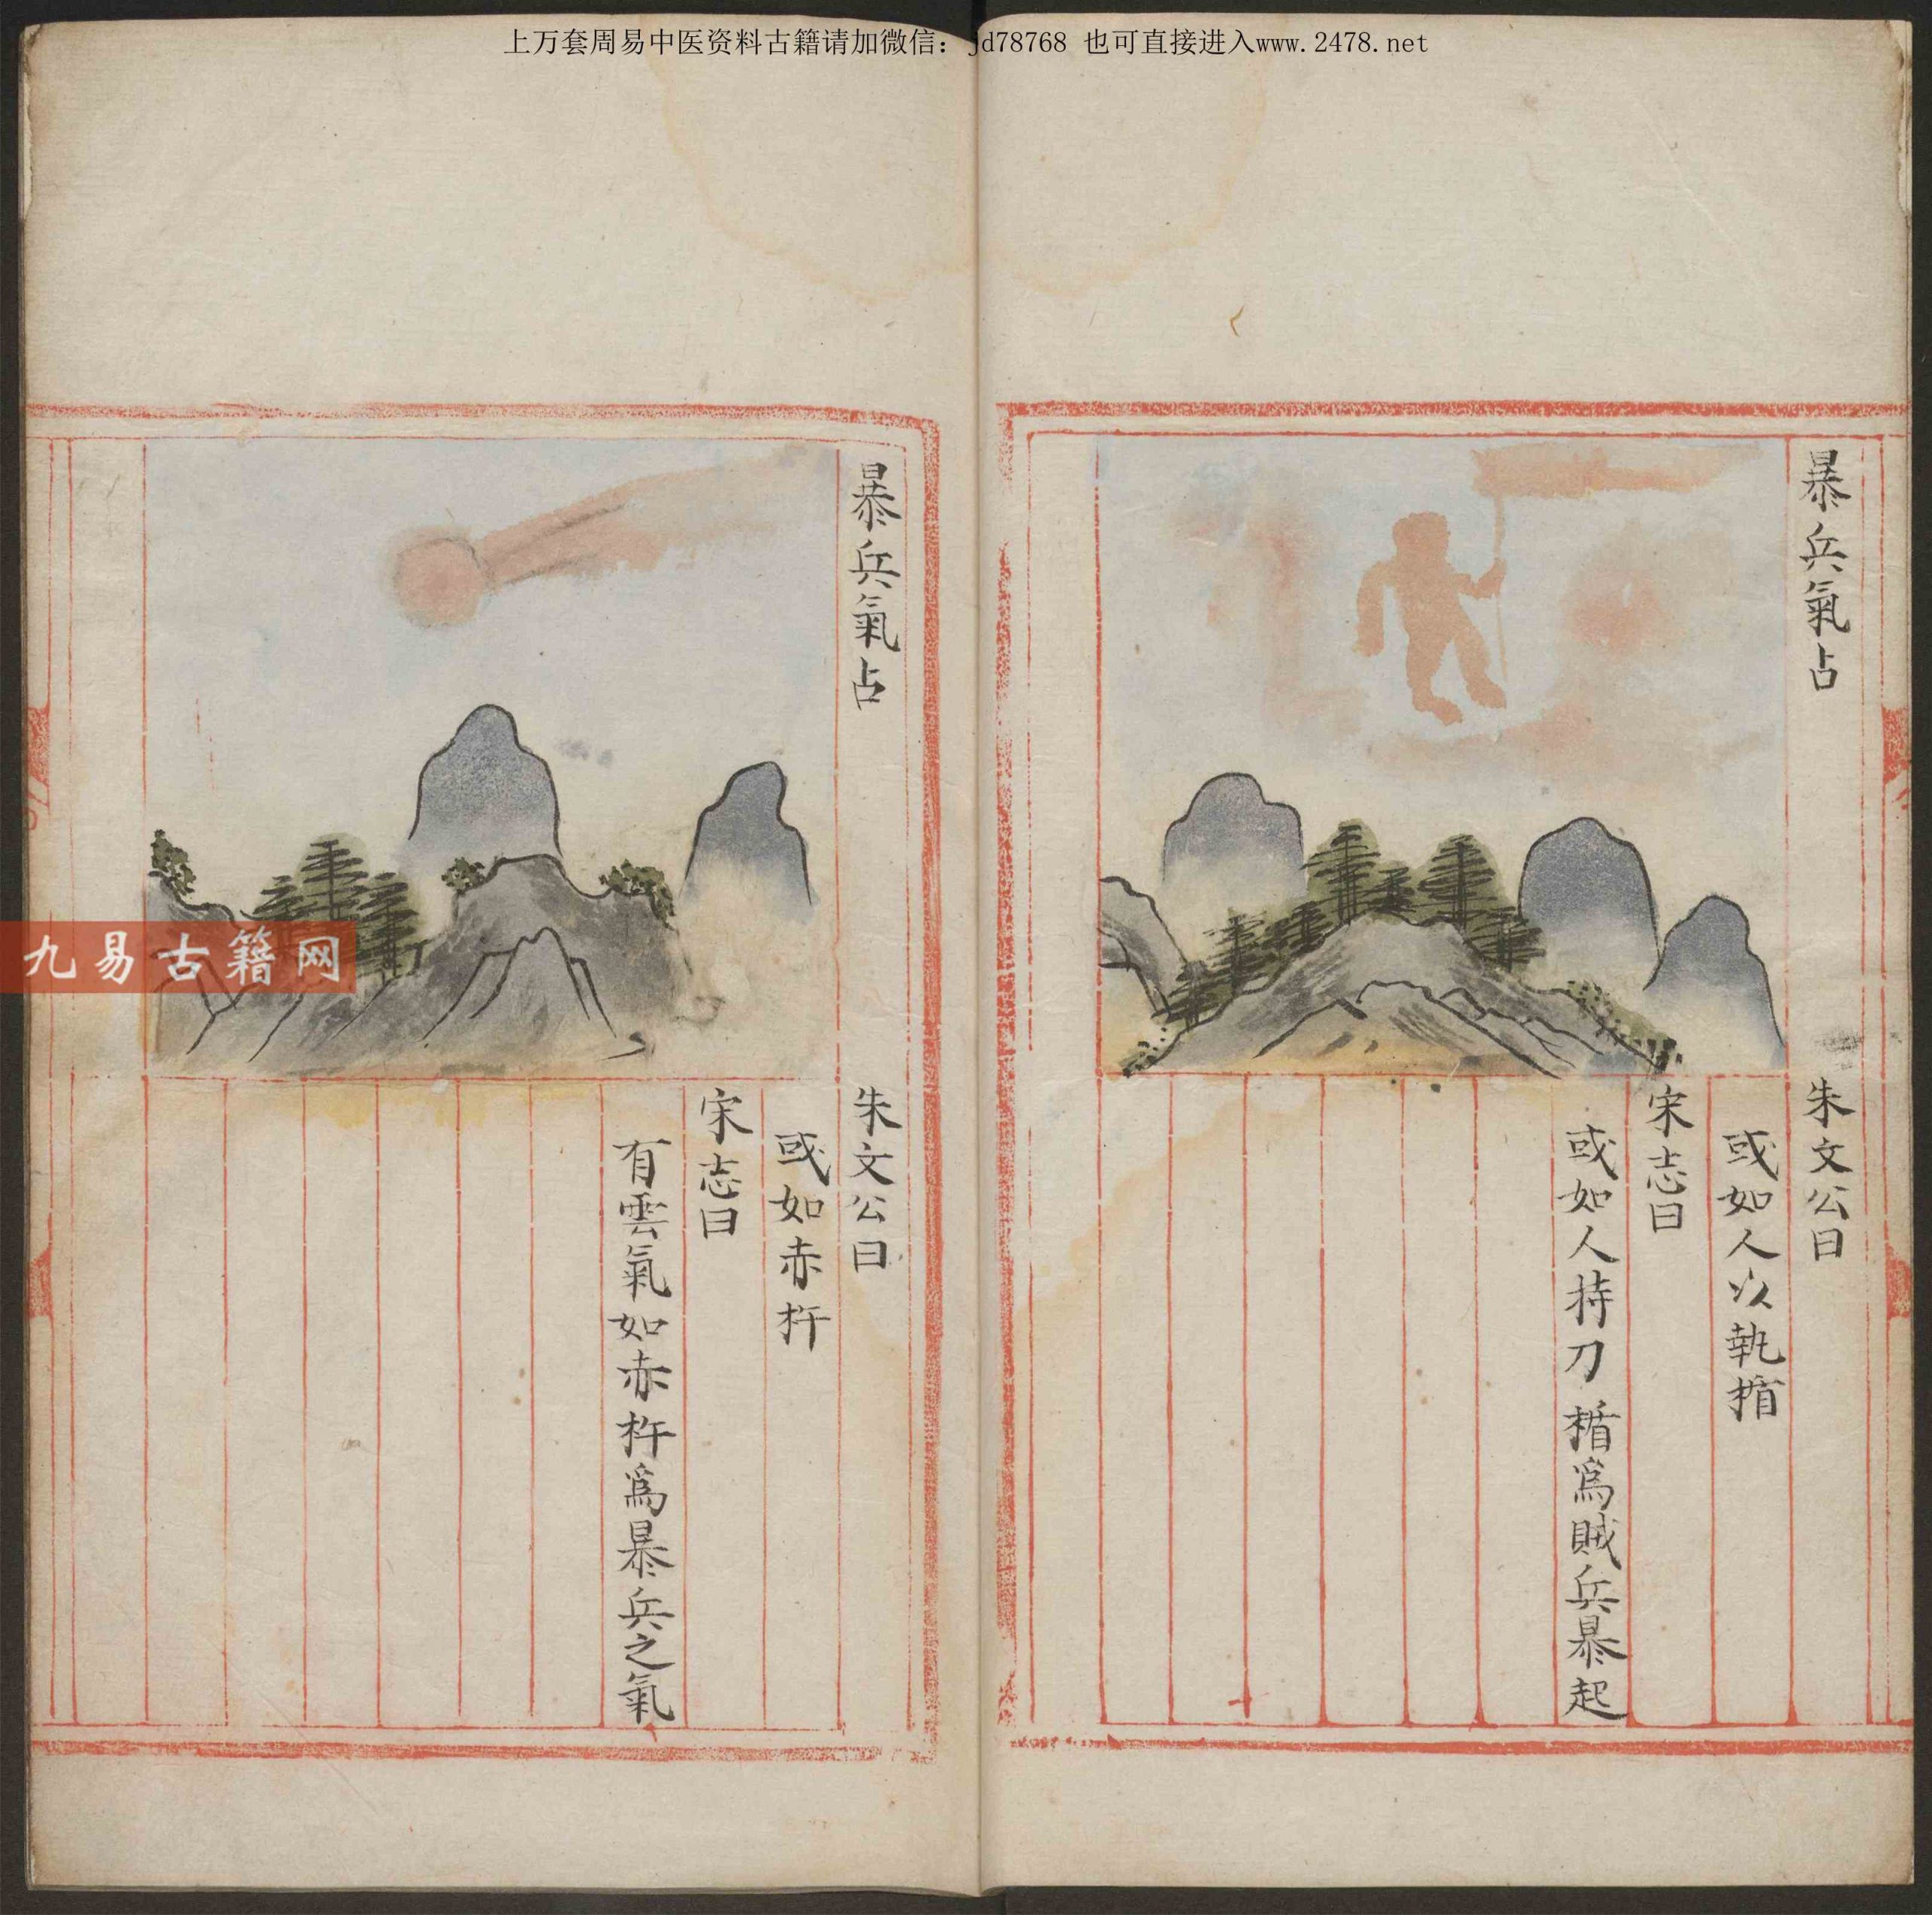 上万套周易中医资料古籍请加微信：jd78768 也可直接进入www.2478.net
暴兵氣占
朱文公曰
或如人以執揗
宋志曰
或如人持刀楯爲賊兵暴起
暴兵氣占
朱文公曰
或如赤杵
宋志曰
有雲氣如赤杵爲暴兵之氣
九易古籍网